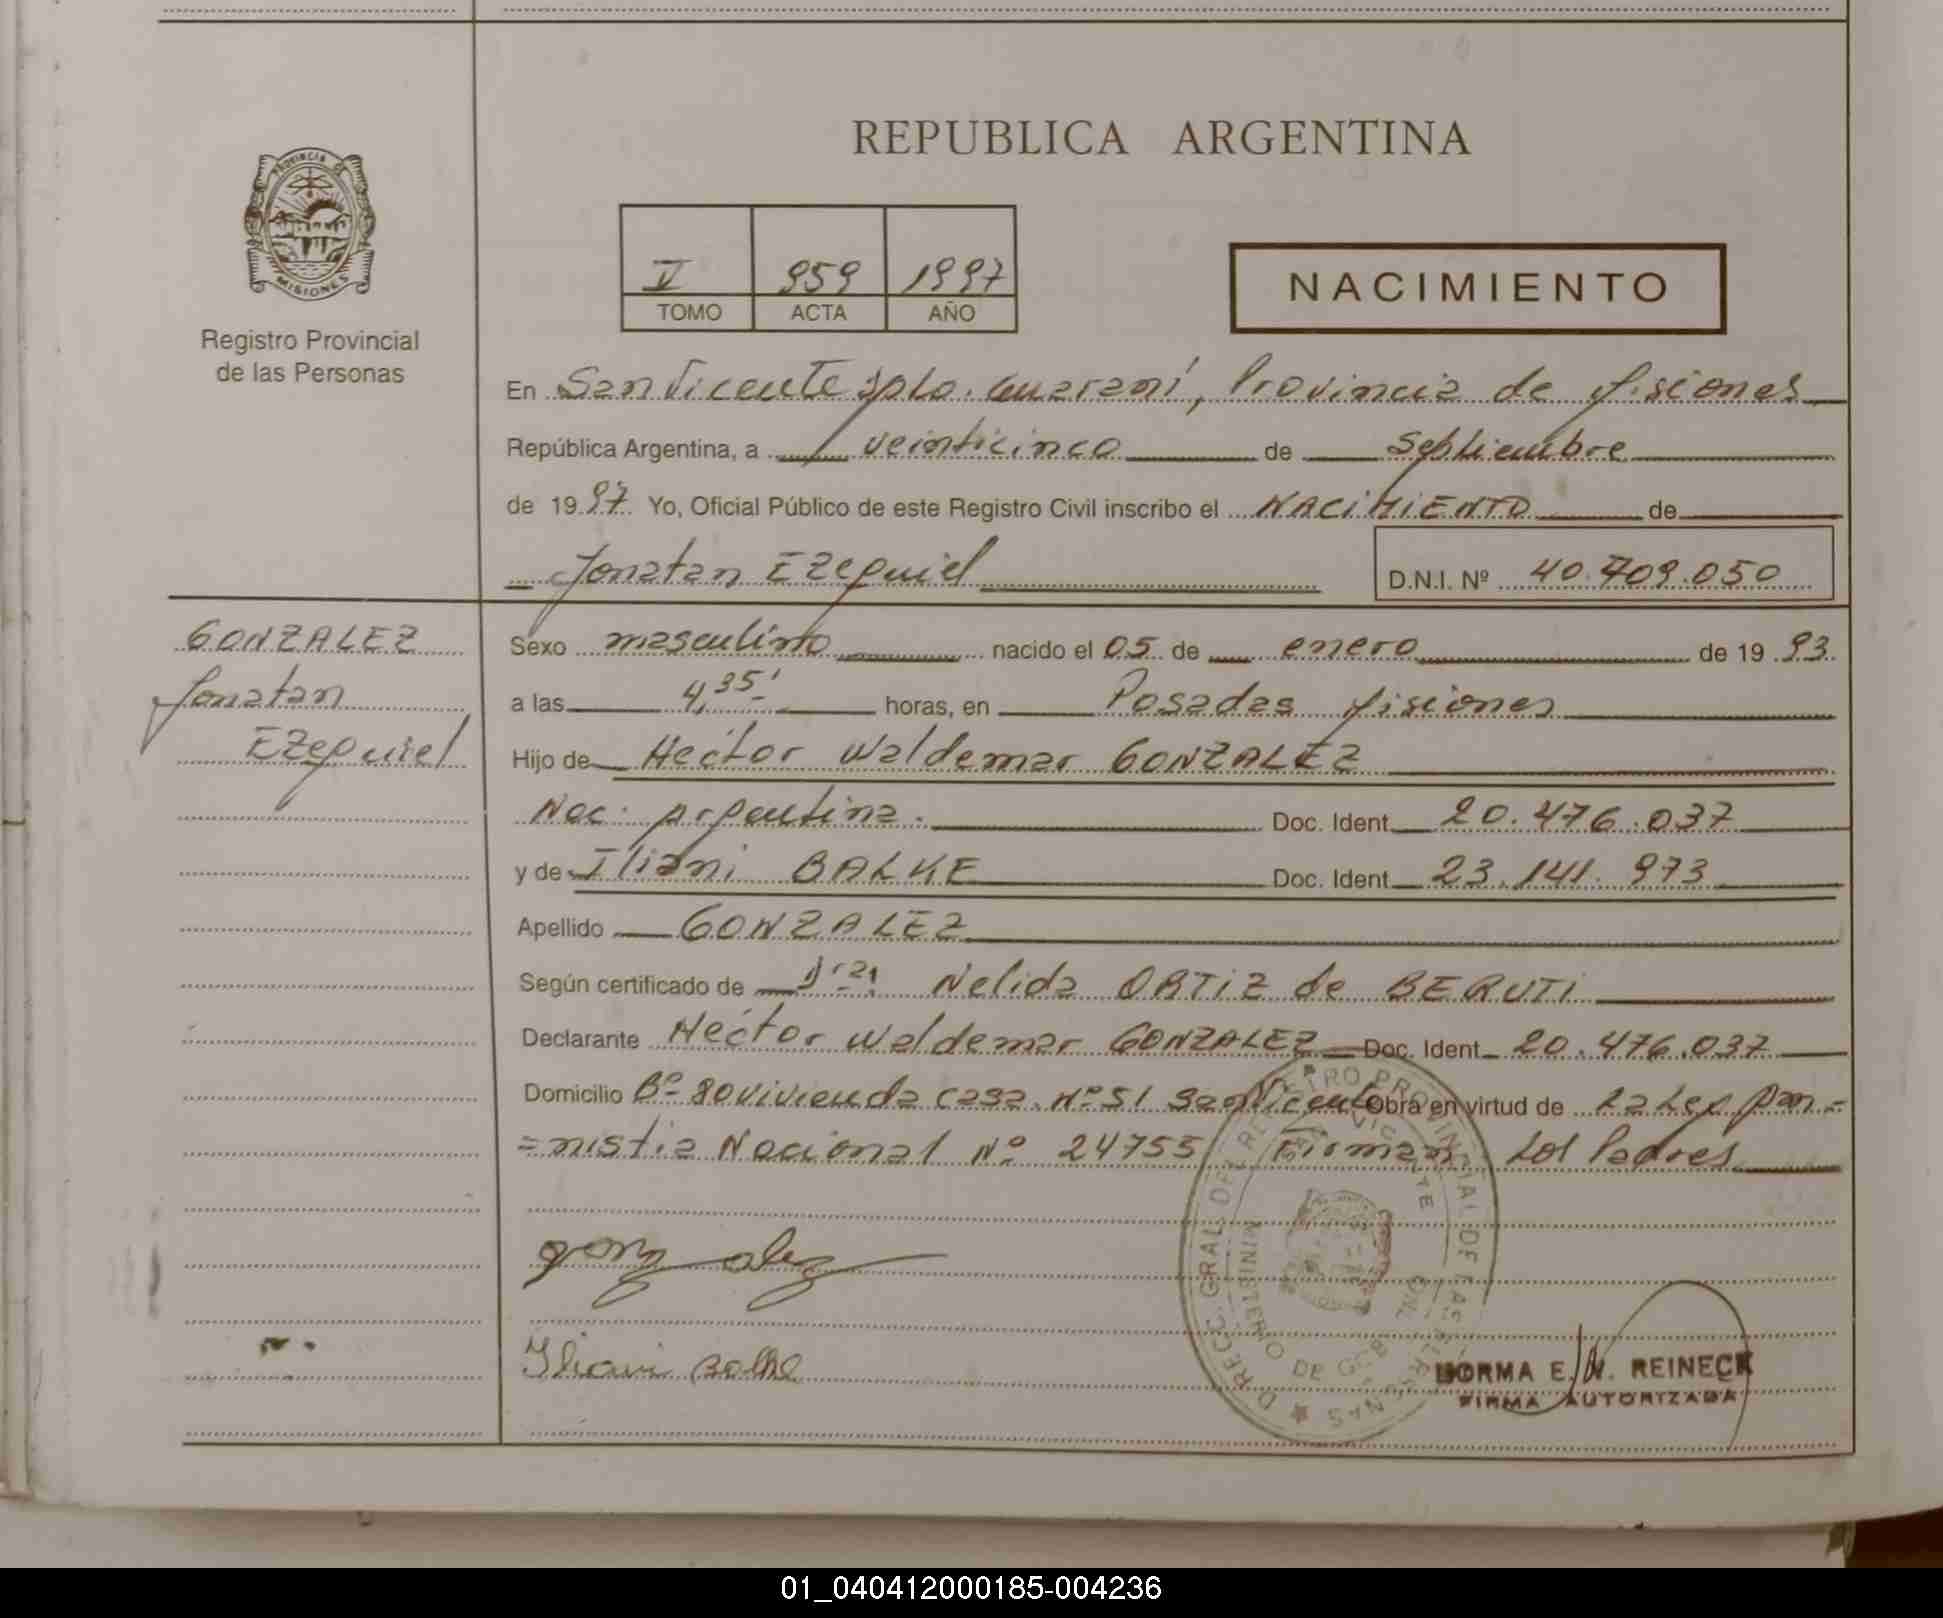 REPUBLICA ARGENTINA
PROVINCIA DE
MISIONES
Registro Provincial
de las Personas
V 959 1997
TOMO ACTA AÑO
NACIMIENTO
En San Vicente Dpto. Guaraní, Provincia de Misiones
República Argentina, a veinticinco de Septiembre
de 1997 Yo, Oficial Público de este Registro Civil inscribo el NACIMIENTO de
Jonatan Ezequiel D.N.I. Nº 40.709.050
GONZALEZ
Jonatan
Ezequiel
Sexo masculino nacido el 05 de enero de 1993
a las 4,35' horas, en Posadas Misiones
Hijo de Héctor Waldemar GONZALEZ
Nac. Argentina. Doc. Ident. 20.476.037
y de Iliani BALKE Doc. Ident. 23.141.973
Apellido GONZALEZ
Según certificado de Dra. Nelida ORTIZ de BERUTI
Declarante Héctor Waldemar GONZALEZ Doc. Ident. 20.476.037
Domicilio Bº 80 vivienda casa Nº 51 San Vicente Obra en virtud de La Ley Am-
=nistia Nacional Nº 24755 Firman Los Padres
gonzalez
Iliani Balke
DIRECC. GRAL. DEL REGISTRO PROVINCIAL DE LAS PERSONAS
SAN VICENTE
MINISTERIO DE GOB.
NORMA E. W. REINECK
FIRMA AUTORIZADA
01_040412000185-004236